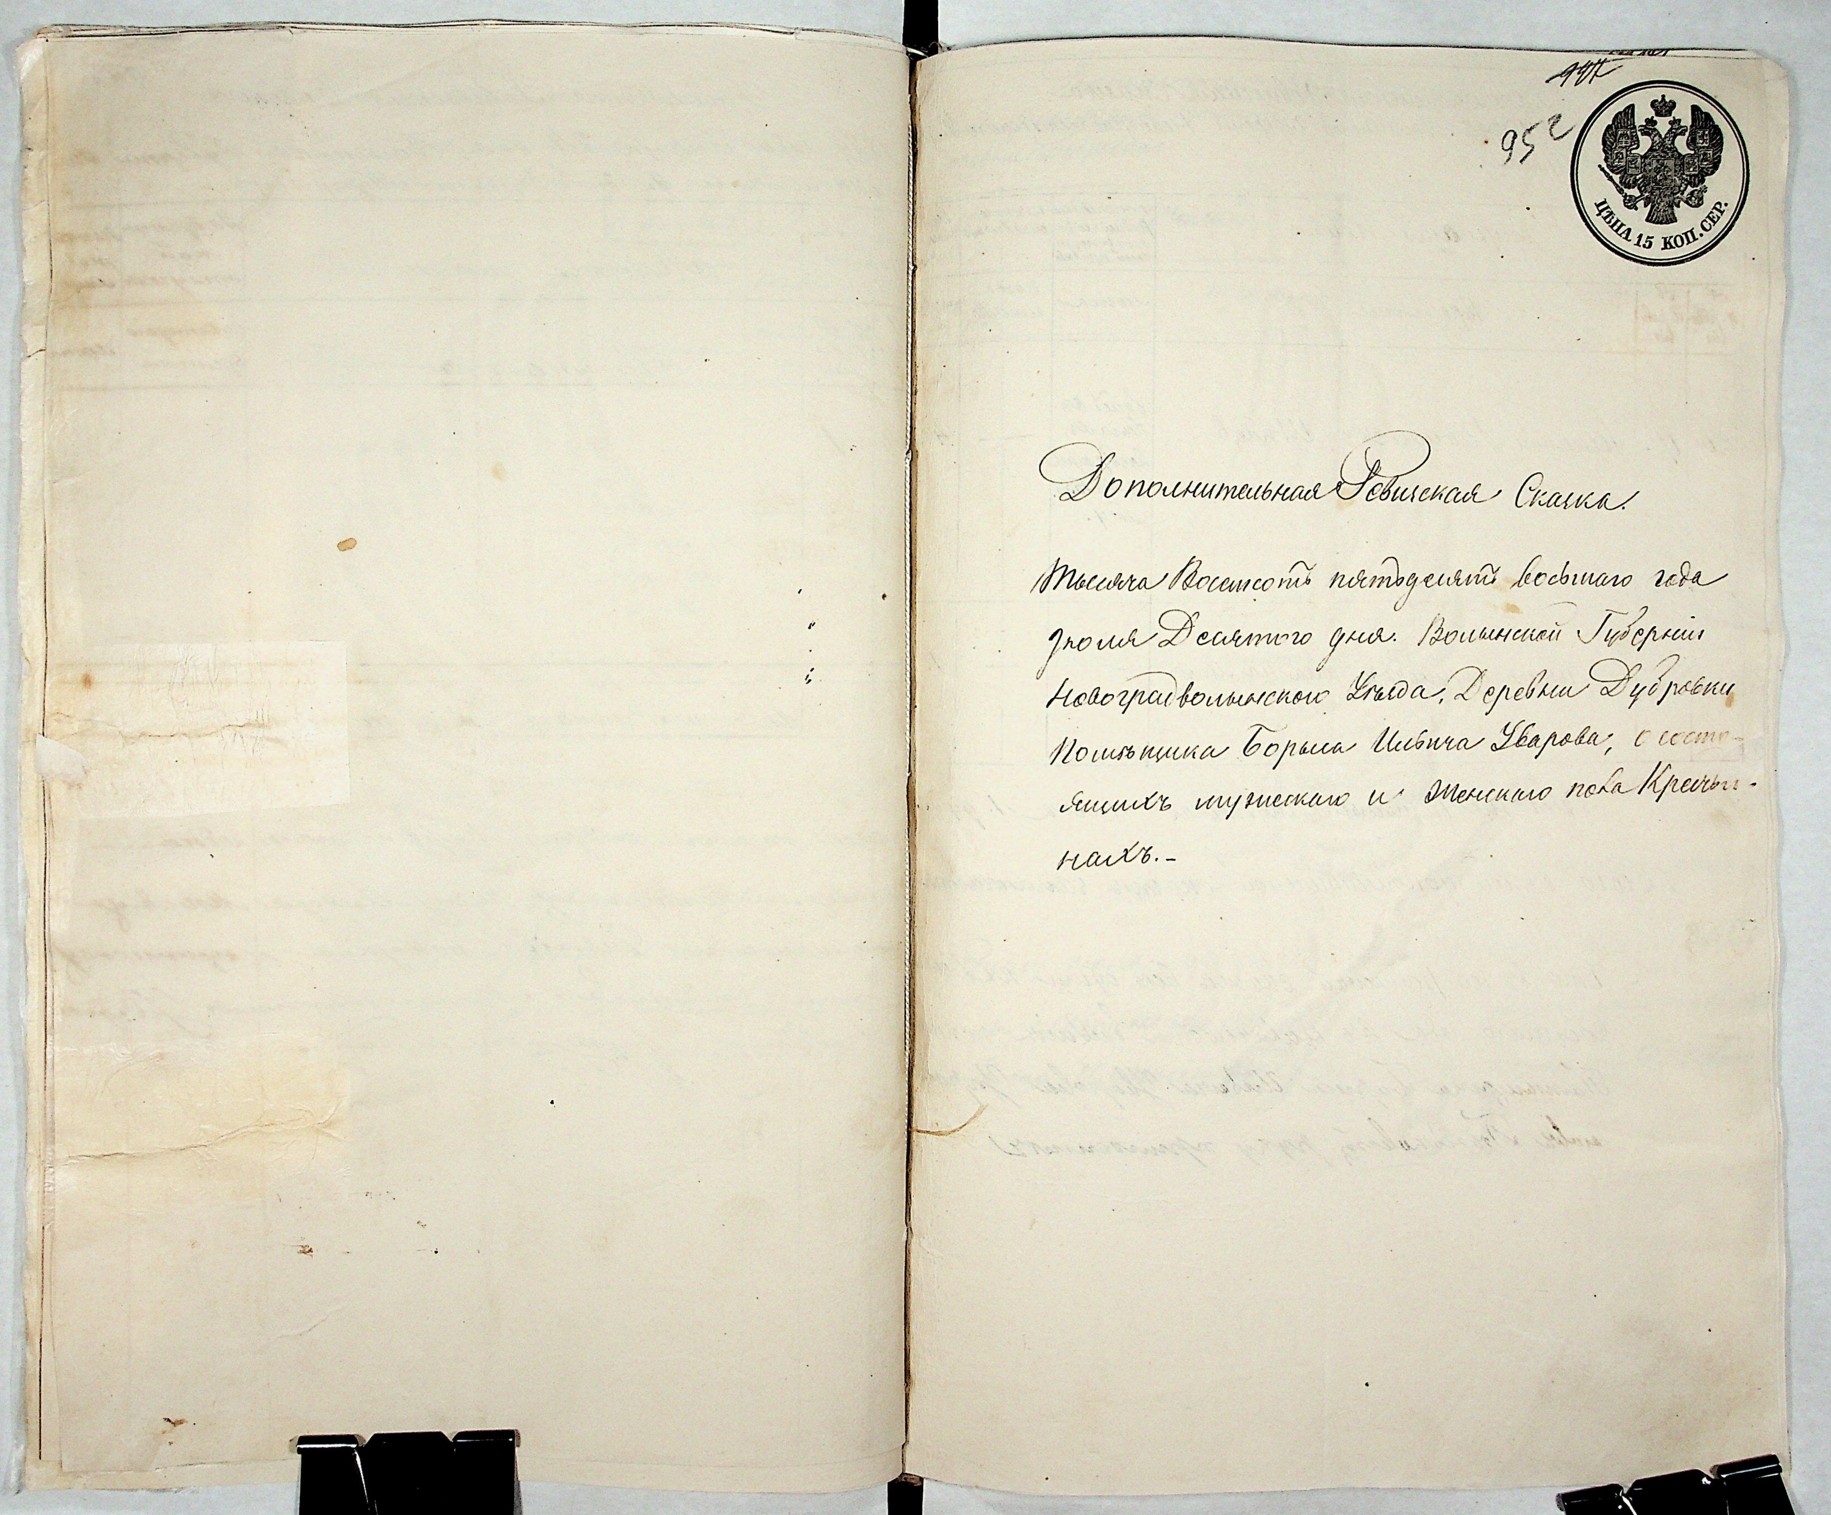 952
ЦѢНА 15 КОП. СЕР.
Дополнительная Ревиская Скаска.
Тысяча Восемсотъ пятьдесятъ восьмаго года
Іюля Десятого дня. Волынской Губерніи
Новоградволынского Уѣзда, Деревни Дубровки
Помѣщика Бориса Ильича Уварова, о состо-
ящихъ мужескаго и женскаго пола Крестья-
нахъ.-